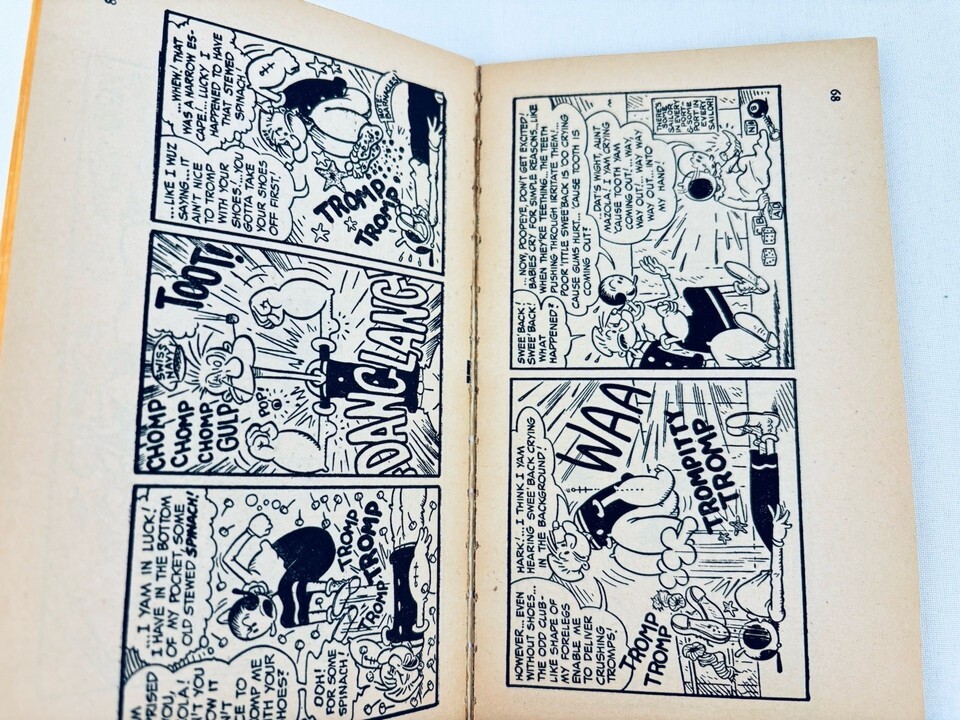 M
PRISED
YOU,
OLA!
N'T YOU
OW IT
CE TO
OMP ME
TH YOUR
HOES?
...I YAM IN LUCK!
I HAVE IN THE BOTTOM
OF MY POCKET, SOME
OLD STEWED SPINACH!
OOH!
FOR SOME
SPINACH!
TROMP
TROMP
TROMP
CHOMP
CHOMP
CHOMP
GULP
SWISS
NAVY
TOOT!
POP!
DANG CLANG
...LIKE I WUZ
SAYING....IT
AIN'T NICE
TO TROMP
WITH YOUR
SHOES...YOU
GOTTA TAKE
YOUR SHOES
OFF FIRST!
...WHEW! THAT
WAS A NARROW ES-
CAPE!...LUCKY I
HAPPENED TO HAVE
THAT STEWED
SPINACH!
NOTE
BARNACLES!
TROMP
TROMP
HOWEVER...EVEN
WITHOUT SHOES...
THE ODD CLUB-
LIKE SHAPE OF
MY FORELEGS
ENABLE ME
TO DELIVER
CRUSHING
TROMPS!
HARK!...I THINK I YAM
HEARING SWEE'BACK CRYING
IN THE BACKGROUND!
WAA
TROMP
TROMP
TROMPITY
TROMP
SWEE'BACK!
SWEE'BACK!
WHAT
HAPPENED?
...NOW, POOPEYE, DON'T GET EXCITED!
BABIES CRY FOR SIMPLE REASONS...LIKE
WHEN THEY'RE TEETHING...THE TEETH
PUSHING THROUGH IRRITATE THEM!...
POOR 'ITTLE SWEE'BACK IS OO CRYING
CAUSE GUMS HURT...'CAUSE TOOTH IS
COMING OUT?
...DAT'S WIGHT, AUNT
MAZOLA! I YAM CRYING
'CAUSE TOOTH YAM
COMING OUT!...WAY,
WAY OUT!...WAY WAY
WAY OUT...INTO
MY HAND!
THERE'S
SOME
SAILOR
IN EVERY
PORT-
& SOME
PORT IN
EVERY
SAILOR!
68